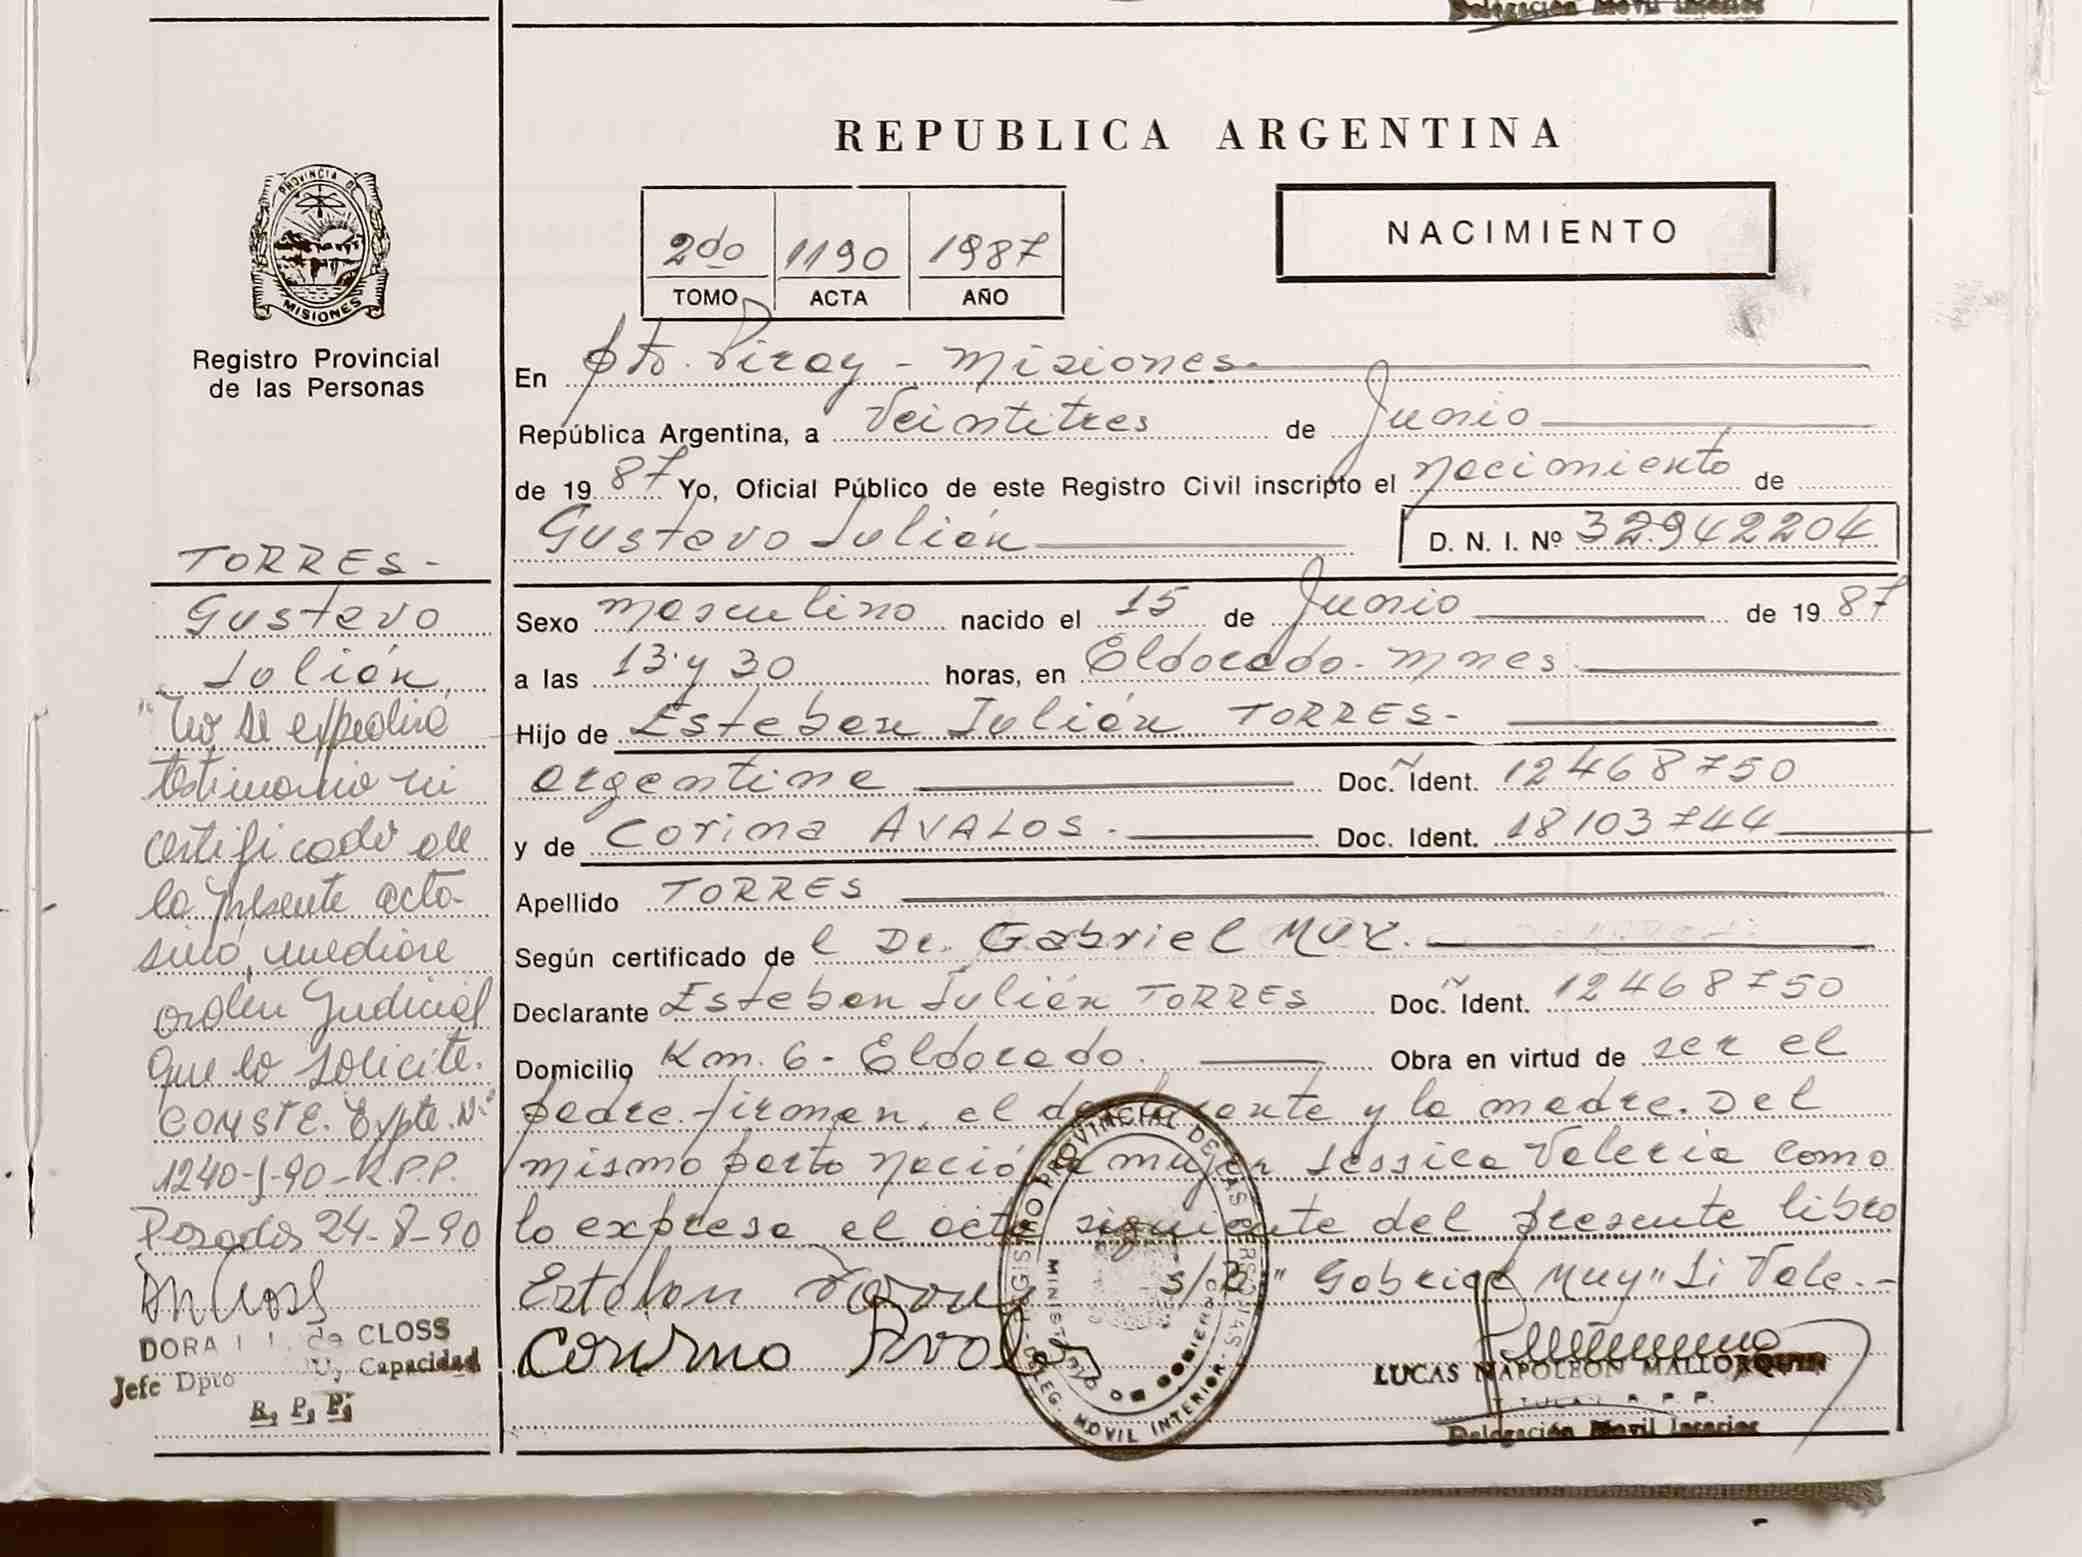 Delegación Movil Interior
REPUBLICA ARGENTINA
PROVINCIA DE
MISIONES
Registro Provincial
de las Personas
2do 1190 1987
TOMO ACTA AÑO
NACIMIENTO
En pto. Piray - Misiones
República Argentina, a Veintitres de Junio
de 1987 Yo, Oficial Público de este Registro Civil inscripto el nacimiento de
Gustavo Julián D. N. I. Nº 32942204
Sexo masculino nacido el 15 de Junio de 1987
a las 13 y 30 horas, en Eldorado - Mnes
Hijo de Esteban Julián TORRES-
argentina Doc. Ident. 12468750
y de Corina AVALOS.- Doc. Ident. 18103744
Apellido TORRES
Según certificado de l Dr. Gabriel MUY.
Declarante Esteban Julián TORRES Doc. Ident. 12468750
Domicilio Km. 6 - Eldorado. Obra en virtud de ser el
padre. firman, el declarante y la madre. Del
mismo parto nació la mujer Jessica Valeria como
lo expresa el acta siguiente del presente libro
s/B "Gabriel Muy" Si Vale.-
Esteban Torres
Corina Avalos
REGISTRO PROVINCIAL DE LAS PERSONAS
MINISTERIO DE GOBIERNO
DELEG. MOVIL INTERIOR
LUCAS NAPOLEON MALLORQUIN
TITULAR R. P. P.
Delegación Movil Interior
TORRES-
Gustavo
Julián
"No se expedirá
testimonio ni
certificado de
la presente acta
sinó, mediare
orden Judicial
que lo solicite.
CONSTE. Expte. Nº
1240-J-90-R.P.P.
Posadas 24-8-90
DORA de CLOSS
Jefe Dpto Capacidad
R. P. P.